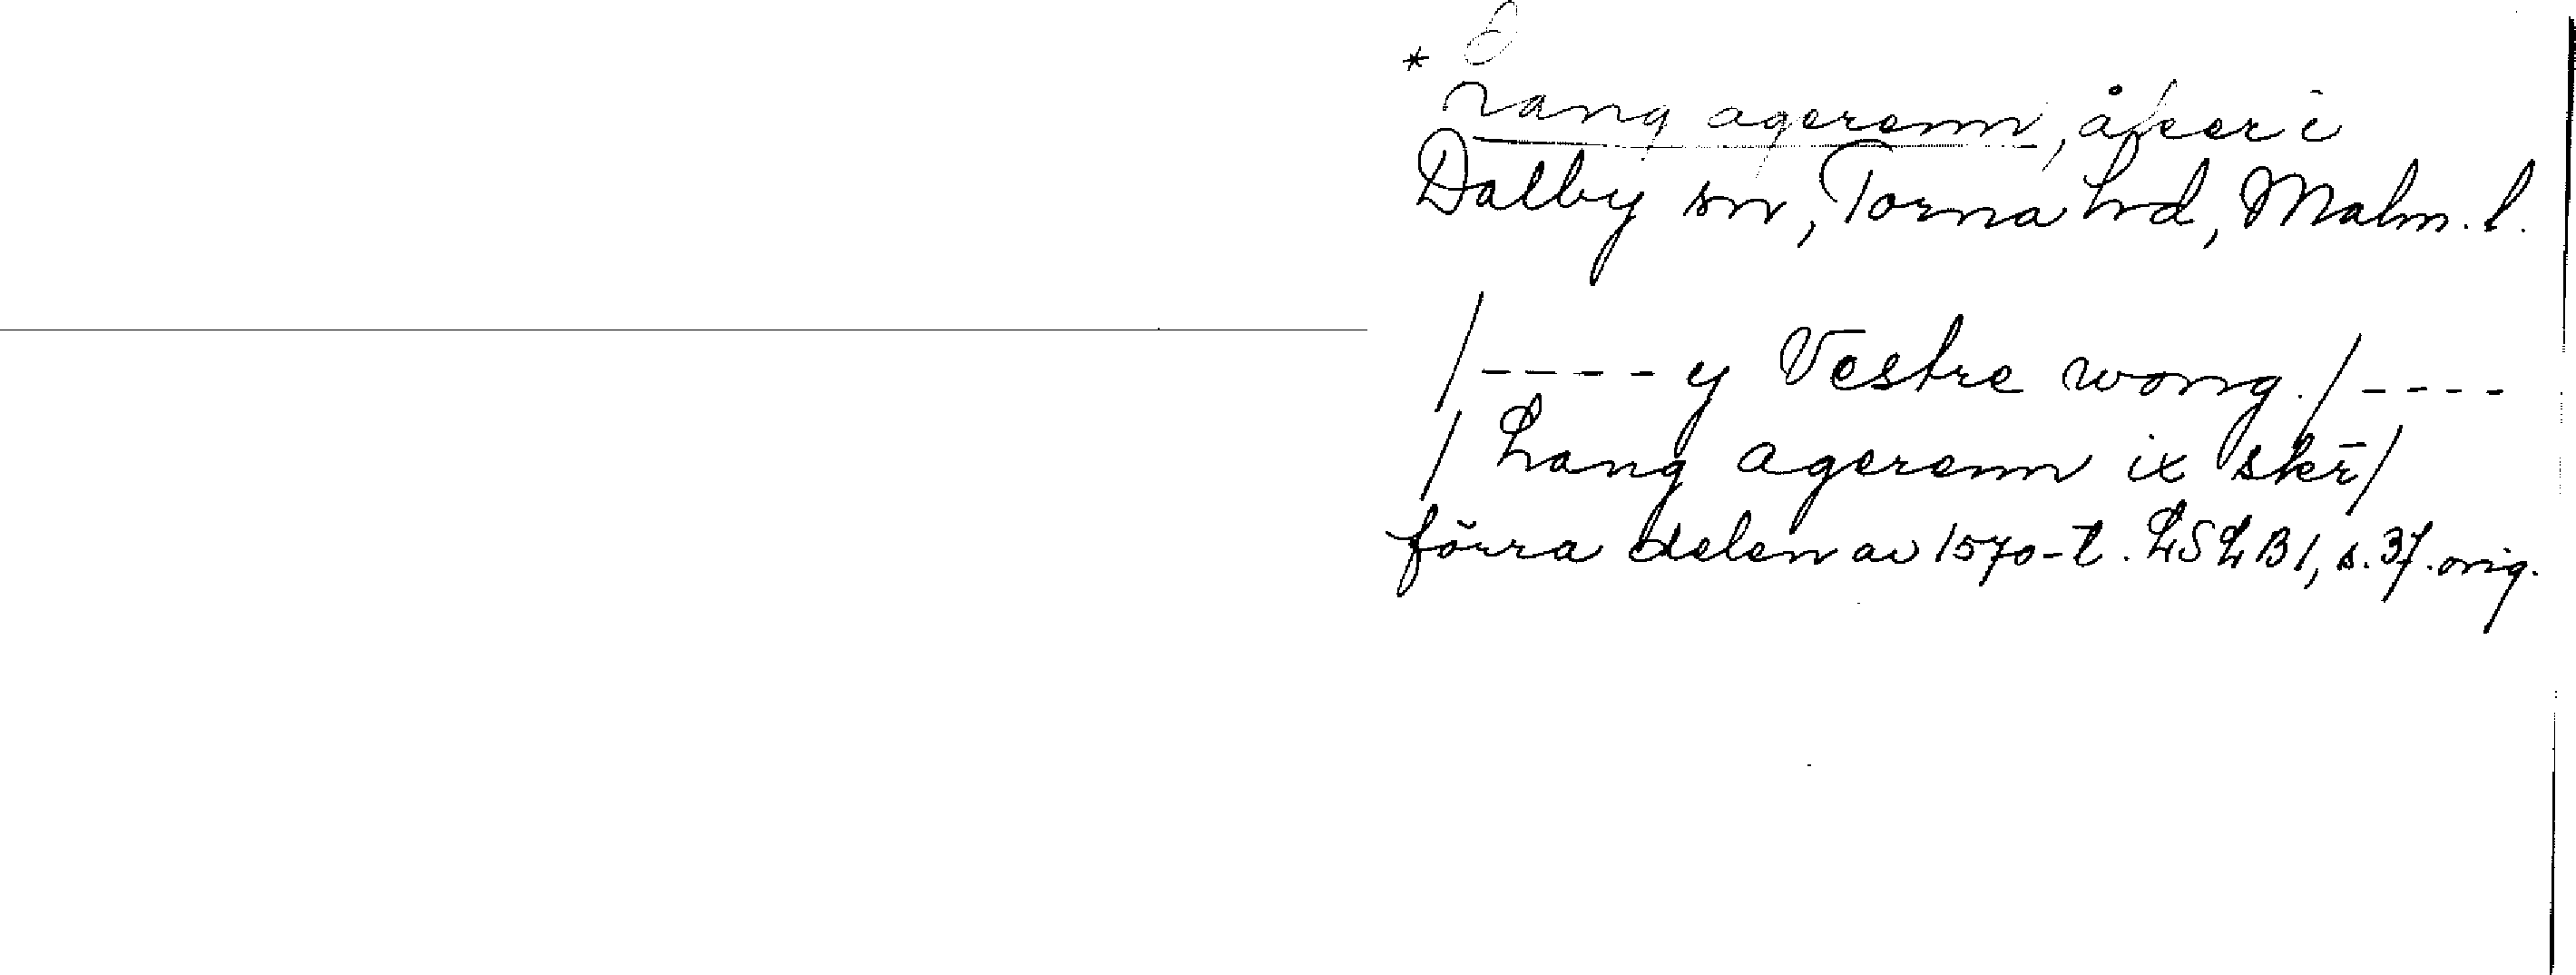 * Lang agerenn, åker i
Dalby sn, Torna hd, Malm. l.
/---- y Vestre wong./----
/ Lang agerenn ix skr̄/
förra delen av 1570-t. LSLB1, s. 37. orig.